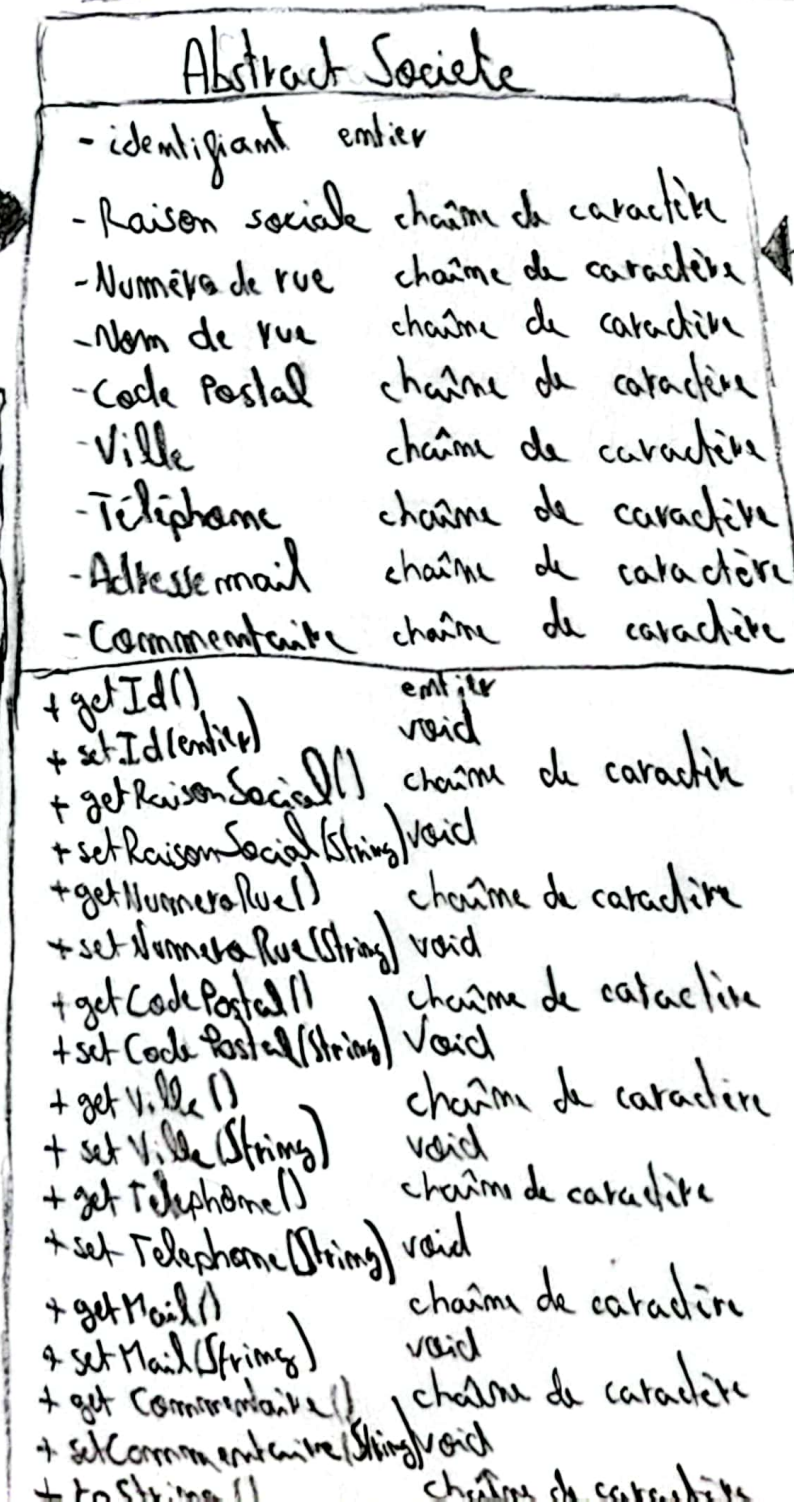 Abstract Societe
- identifiant entier
- Raison sociale chaîne de caractère
- Numéro de rue chaîne de caractère
- Nom de rue chaîne de caractère
- Code Postal chaîne de caractère
- Ville chaîne de caractère
- Téléphone chaîne de caractère
- Adresse mail chaîne de caractère
- Commentaire chaîne de caractère
+ getId() entier
+ setId(entier) void
+ getRaisonSocial() chaîne de caractère
+ setRaisonSocial(String) void
+ getNumeroRue() chaîne de caractère
+ setNumeroRue(String) void
+ getCodePostal() chaîne de caractère
+ setCodePostal(String) void
+ getVille() chaîne de caractère
+ setVille(String) void
+ getTelephone() chaîne de caractère
+ setTelephone(String) void
+ getMail() chaîne de caractère
+ setMail(String) void
+ getCommentaire() chaîne de caractère
+ setCommentaire(String) void
+ toString() chaîne de caractère